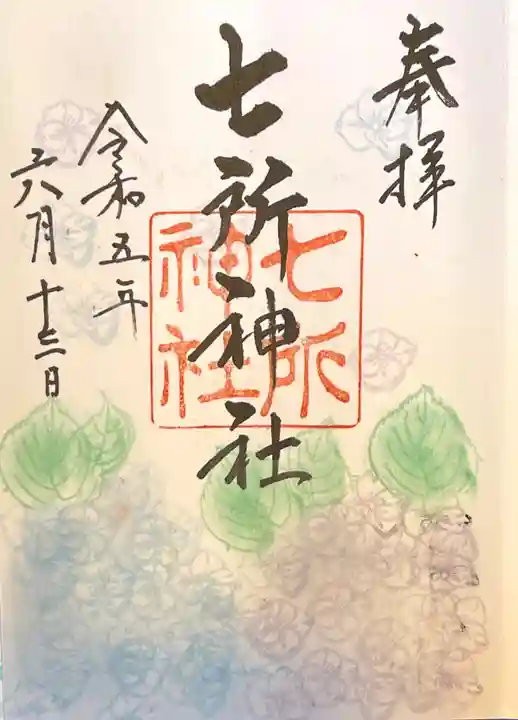 奉拝
七所神社
七所
神社
令和五年
六月十三日